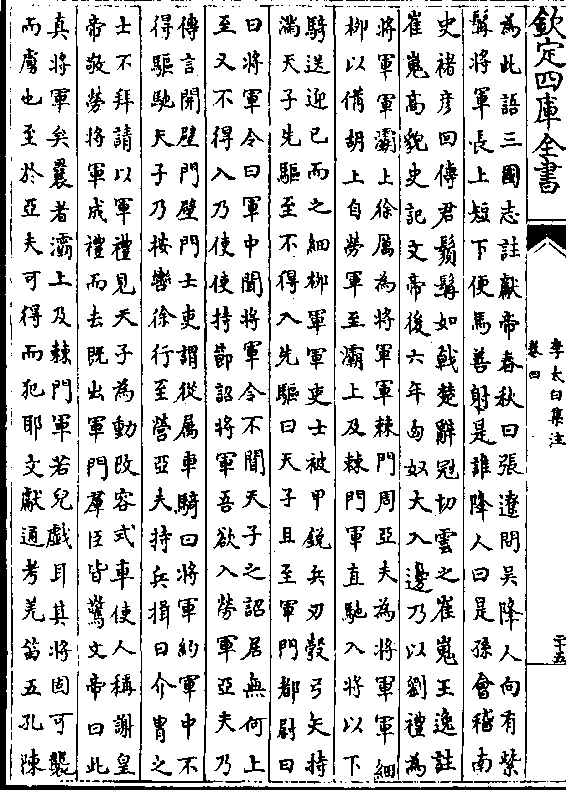 欽定四庫全書
李太白集注
卷四
二十五
為此語三國志註獻帝春秋曰張遼問吳降人向有紫
髯將軍長上短下便馬善射是誰降人曰是孫會稽南
史褚彥回傳君鬚髯如戟楚辭冠切雲之崔嵬王逸註
崔嵬高貌史記文帝後六年匈奴大入邊乃以劉禮為
將軍軍灞上徐厲為將軍軍棘門周亞夫為將軍軍細
柳以備胡上自勞軍至灞上及棘門軍直馳入將以下
騎送迎已而之細柳軍軍吏士被甲銳兵刃彀弓矢持
滿天子先驅至不得入先驅曰天子且至軍門都尉曰
曰將軍令曰軍中聞將軍令不聞天子之詔居無何上
至又不得入乃使使持節詔將軍吾欲入勞軍亞夫乃
傳言開壁門壁門士吏謂從屬車騎曰將軍約軍中不
得驅馳天子乃按轡徐行至營亞夫持兵揖曰介胄之
士不拜請以軍禮見天子為動改容式車使人稱謝皇
帝敬勞將軍成禮而去既出軍門羣臣皆驚文帝曰此
真將軍矣曩者灞上及棘門軍若兒戲耳其將固可襲
而虜也至於亞夫可得而犯耶文獻通考羌笛五孔陳